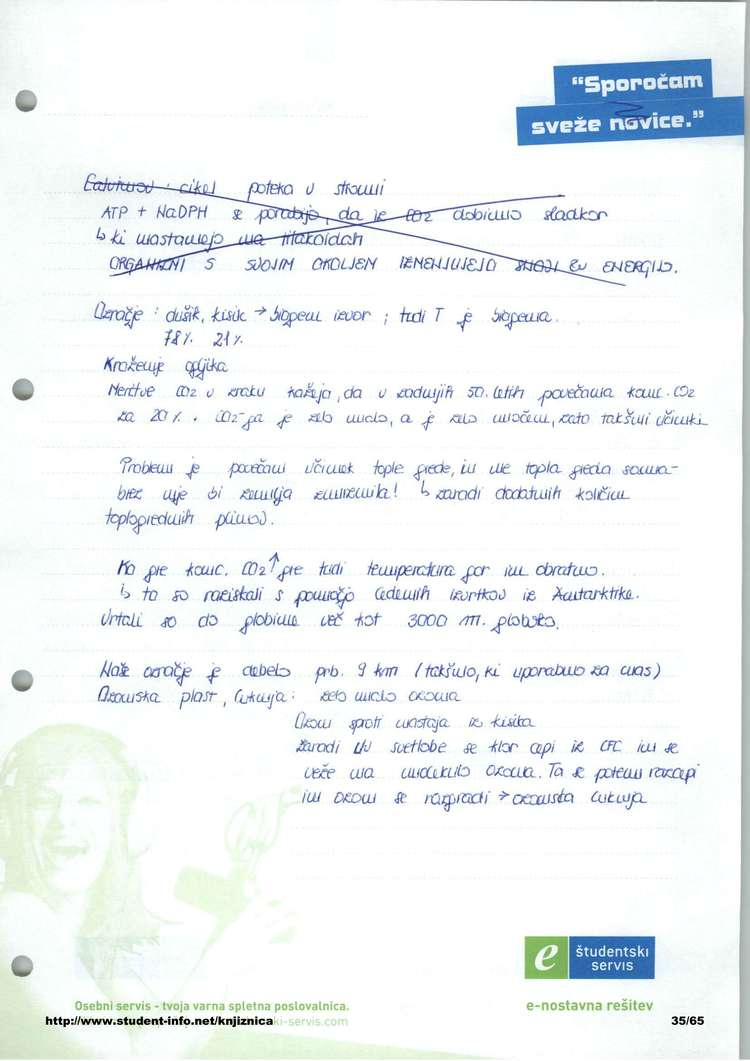 “Sporočam
sveže novice.”
Calvinov cikel poteka v stromi
ATP + NaDPH se porabijo, da iz CO2 dobimo sladkor
↳ ki nastanejo na tilakoidah
ORGANIZMI S SVOJIM OKOLJEM IZMENJUJEJO SNOVI IN ENERGIJO.
Ozračje : dušik, kisik → biogeni izvor ; tudi T je biogena.
78% 21%
Kroženje ogljika
Meritve CO2 v zraku kažejo, da v zadnjih 50. letih povečana konc. CO2
za 20%. CO2-ja je zelo malo, a je zelo močan, zato takšni učinki
Problem je povečani učinek tople grede, in ne topla greda sama-
brez nje bi zemlja zmrznila! ↳ zaradi dodatnih količin
toplogrednih plinov.
Ko gre konc. CO2 ↑ gre tudi temperatura gor in obratno.
↳ to so raziskali s pomočjo ledenih izvrtkov iz Antarktike.
Vrtali so do globine več kot 3000 m. globoko.
Naše ozračje je debelo prb. 9 km (takšno, ki uporabno za nas)
Ozonska plast, luknja: zelo malo ozona
Ozon sproti nastaja iz kisika
Zaradi UV svetlobe se klor cepi iz CFC in se
veže na molekulo ozona. Ta se potem razcepi
in ozon se razgradi → ozonska luknja
e študentski
servis
Osebni servis - tvoja varna spletna poslovalnica.
e-nostavna rešitev
http://www.student-info.net/knjiznica
ki-servis.com
35/65